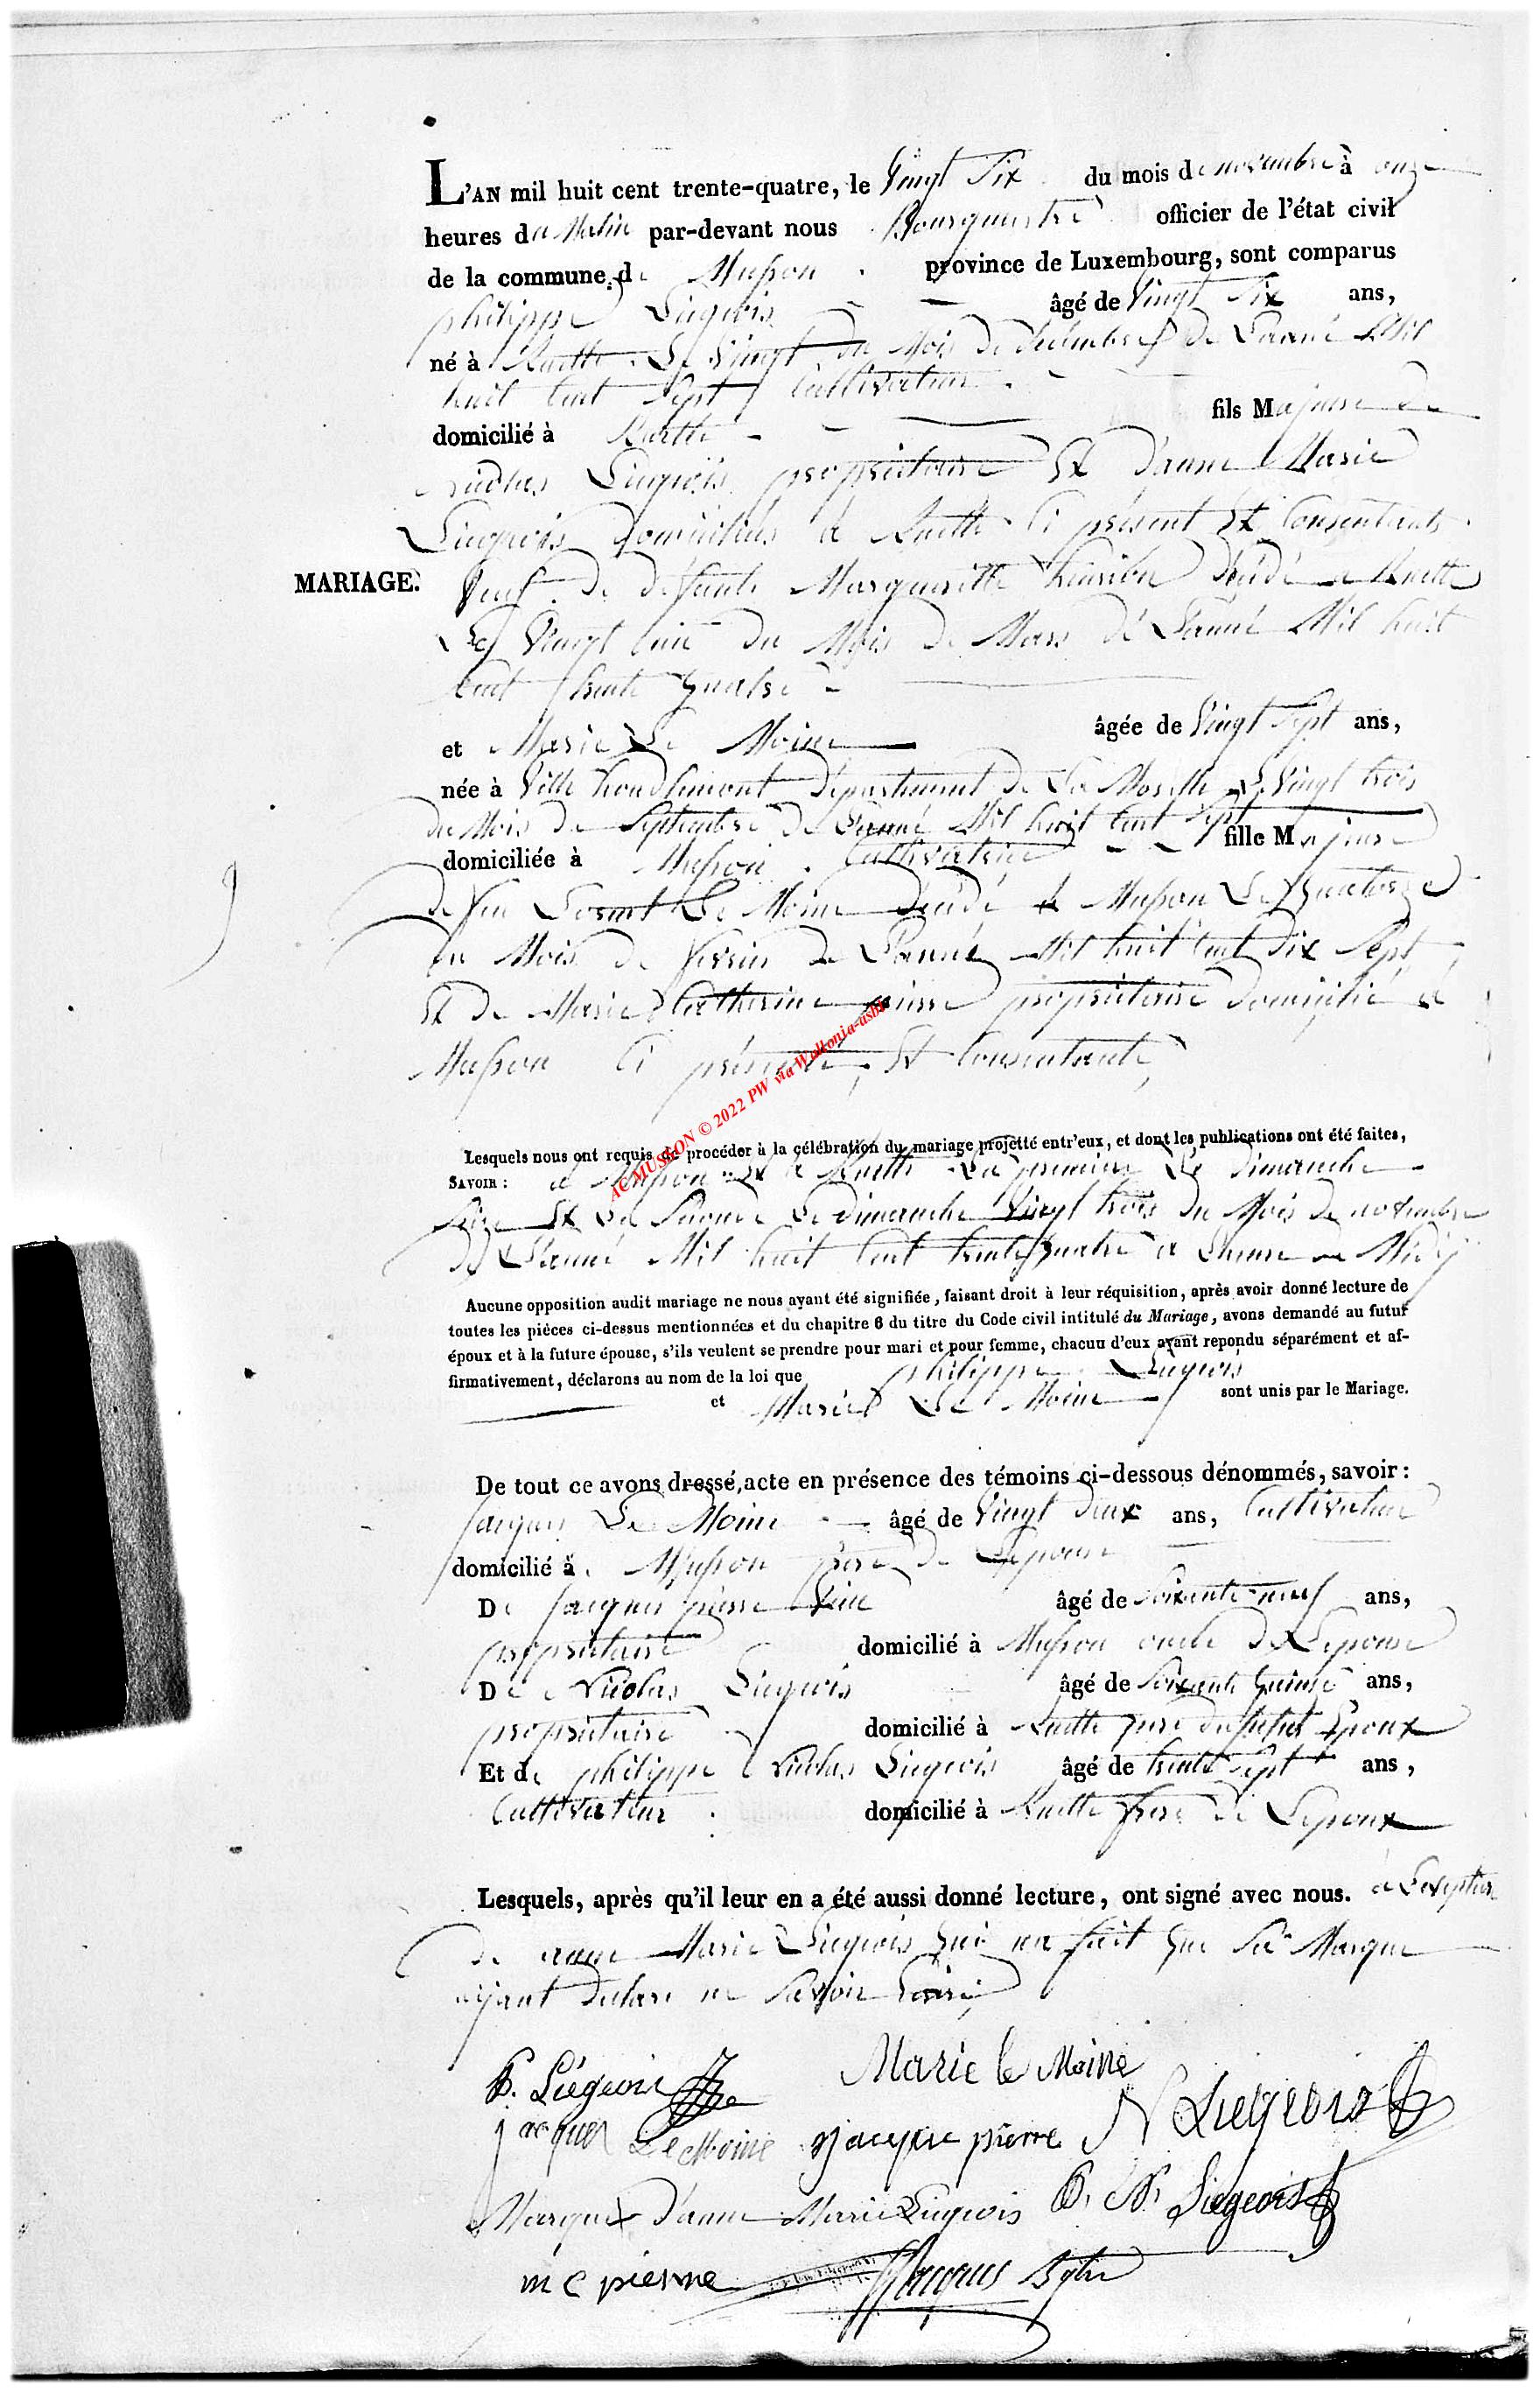 L'AN mil huit cent trente-quatre, le Vingt Six du mois de novembre à onze
heures du Matin par-devant nous Bourguestre officier de l'état civil
de la commune de Musson province de Luxembourg, sont comparus
philippe Liegeois âgé de Vingt Six ans,
né à Ruette Le Vingt du Mois de decembre de Lanné Mil
huit Cent Sept Cultivateur
domicilié à Ruette fils Majeure de
Nicolas Liegeois propriétaire Et d'anne Marie
Liegeois Domiciliés à Ruette Ci présent Et Consentants
MARIAGE.
Veuf de defunte Margueritte décédé a Ruette
Le Vingt du Mois de Mars de Lanné Mil huit
Cent trente quatre
et Marie Le Moine âgée de Vingt Sept ans,
née à Ville houdlemont département de La Moselle Le Vingt trois
du Mois de Septembre de Lanné Mil huit Cent Sept
domiciliée à Musson Cultivatrice fille Majeure
de feu Le Moine décédé à Musson Le Quatorze
du Mois de fevrier de Lanné Mil huit Cent Dix Sept
Et de Marie Catherine pierre propriétaire domicilié à
Musson Ci présente Et Consentante
Lesquels nous ont requis de procéder à la célébration du mariage projetté entr'eux, et dont les publications ont été faites,
SAVOIR : à Musson Et à Ruette La premiere Le dimanche
Seize Et La Seconde Le dimanche Vingt trois du Mois de novembre
de Lanné Mil huit Cent trente quatre a Lheure de Midy
Aucune opposition audit mariage ne nous ayant été signifiée, faisant droit à leur réquisition, après avoir donné lecture de
toutes les pièces ci-dessus mentionnées et du chapitre 6 du titre du Code civil intitulé du Mariage, avons demandé au futur
époux et à la future épouse, s'ils veulent se prendre pour mari et pour femme, chacun d'eux ayant repondu séparément et af-
firmativement, déclarons au nom de la loi que philippe Liegeois
et Marie Le Moine sont unis par le Mariage.
De tout ce avons dressé acte en présence des témoins ci-dessous dénommés, savoir :
Jacques Le Moine âgé de Vingt deux ans, Cultivateur
domicilié à Musson frere de Lepouse
De Jacques pierre âgé de Soixante neuf ans,
propriétaire domicilié à Musson oncle de Lepouse
De Nicolas Liegeois âgé de Soixante quinse ans,
propriétaire domicilié à Ruette pere du futur Epoux
Et de philippe Nicolas Liegeois âgé de trente Sept ans,
Cultivateur domicilié à Ruette frere de Lepoux
Lesquels, après qu'il leur en a été aussi donné lecture, ont signé avec nous. à Lexeption
de anne Marie Liegeois qui na fait que Sa Marque
ayant declaré ne Savoir Ecrire
P. Liégeois Marie le Moine
jacques Le Moine jacque pierre N Liegeois
Marque X d'anne Marie Liegeois P. N. Liegeois
m c pierre Jacques
AC MUSSON © 2022 PW via Wallonia-asbl